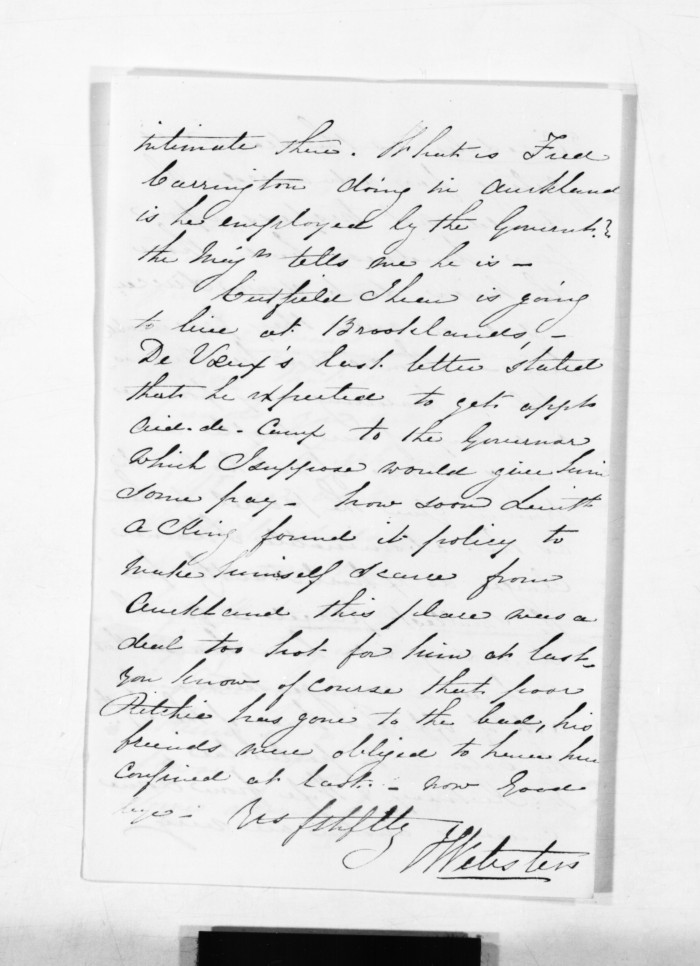 intimate there. What is Fred
Carrington doing in Auckland
is he employed by the Governt.?
the Maj<sup>r</sup> tells me he is –
Cutfield I hear is going
to live at Brooklands, –
De Vœux's last letter stated
that he expected to get appt
aid-de-camp to the Governor
which I suppose would give him
some pay – how soon Lieut
A King found it policy to
make himself scarce from
Auckland this place was a
deal too hot for him at last –
you know of course that poor
Ritchie has gone to the bad, his
friends were obliged to have him
confined at last – now Good
bye – Yrs fthflly
Webster